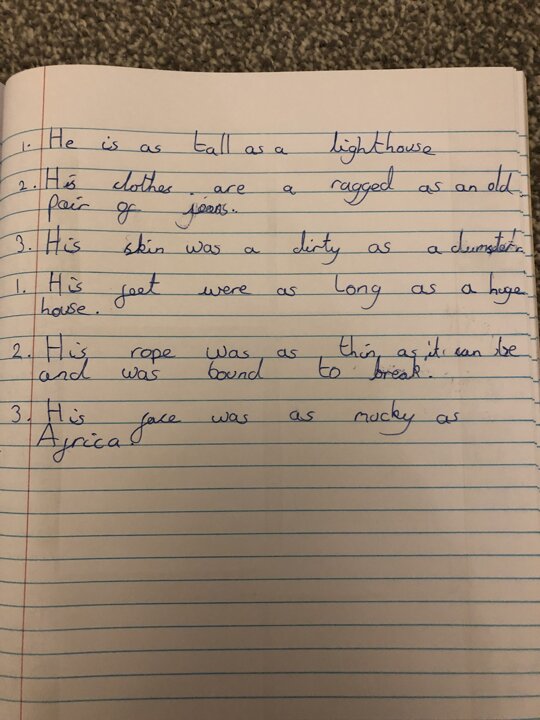 1. He is as tall as a lighthouse
2. His clothes. are a ragged as an old
pair of jeans.
3. His skin was a dirty as a dumster
1. His feet were as long as a huge
house.
2. His rope was as thin as it can be
and was bound to break.
3. His face was as mucky as
Africa